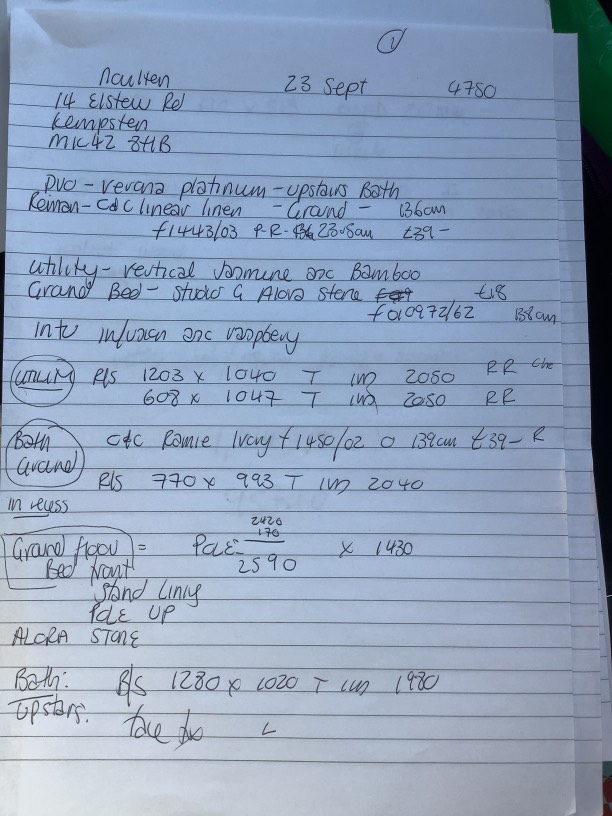 1
Noulten 23 Sept 4750
14 Elstew Rd
Kempsten
MK42 8HB
Duo - verona platinum - upstairs Bath
Reiman - C&C linear linen - Ground - 136cm
f1443/03 P-R- 23.8cm £39-
utility - vertical Jasmine and Bamboo
Grand Bed - Studio G Alora Stone £18
f010972/62 138cm
Into Infusion and raspbery
R/S 1203 x 1040 T 2050 RR
608 x 1047 T 2050 RR
Bath Grand C&C Ramie Ivory f1450/02 O 139cm £39- R
R/S 770 x 993 T 2040
in recess
2420
170
Grand floor = Pole 2590 x 1430
Bed front
Stand Lining
Pole UP
ALORA STONE
Bath: B/S 1280 x 1020 T 1980
Upstars. face